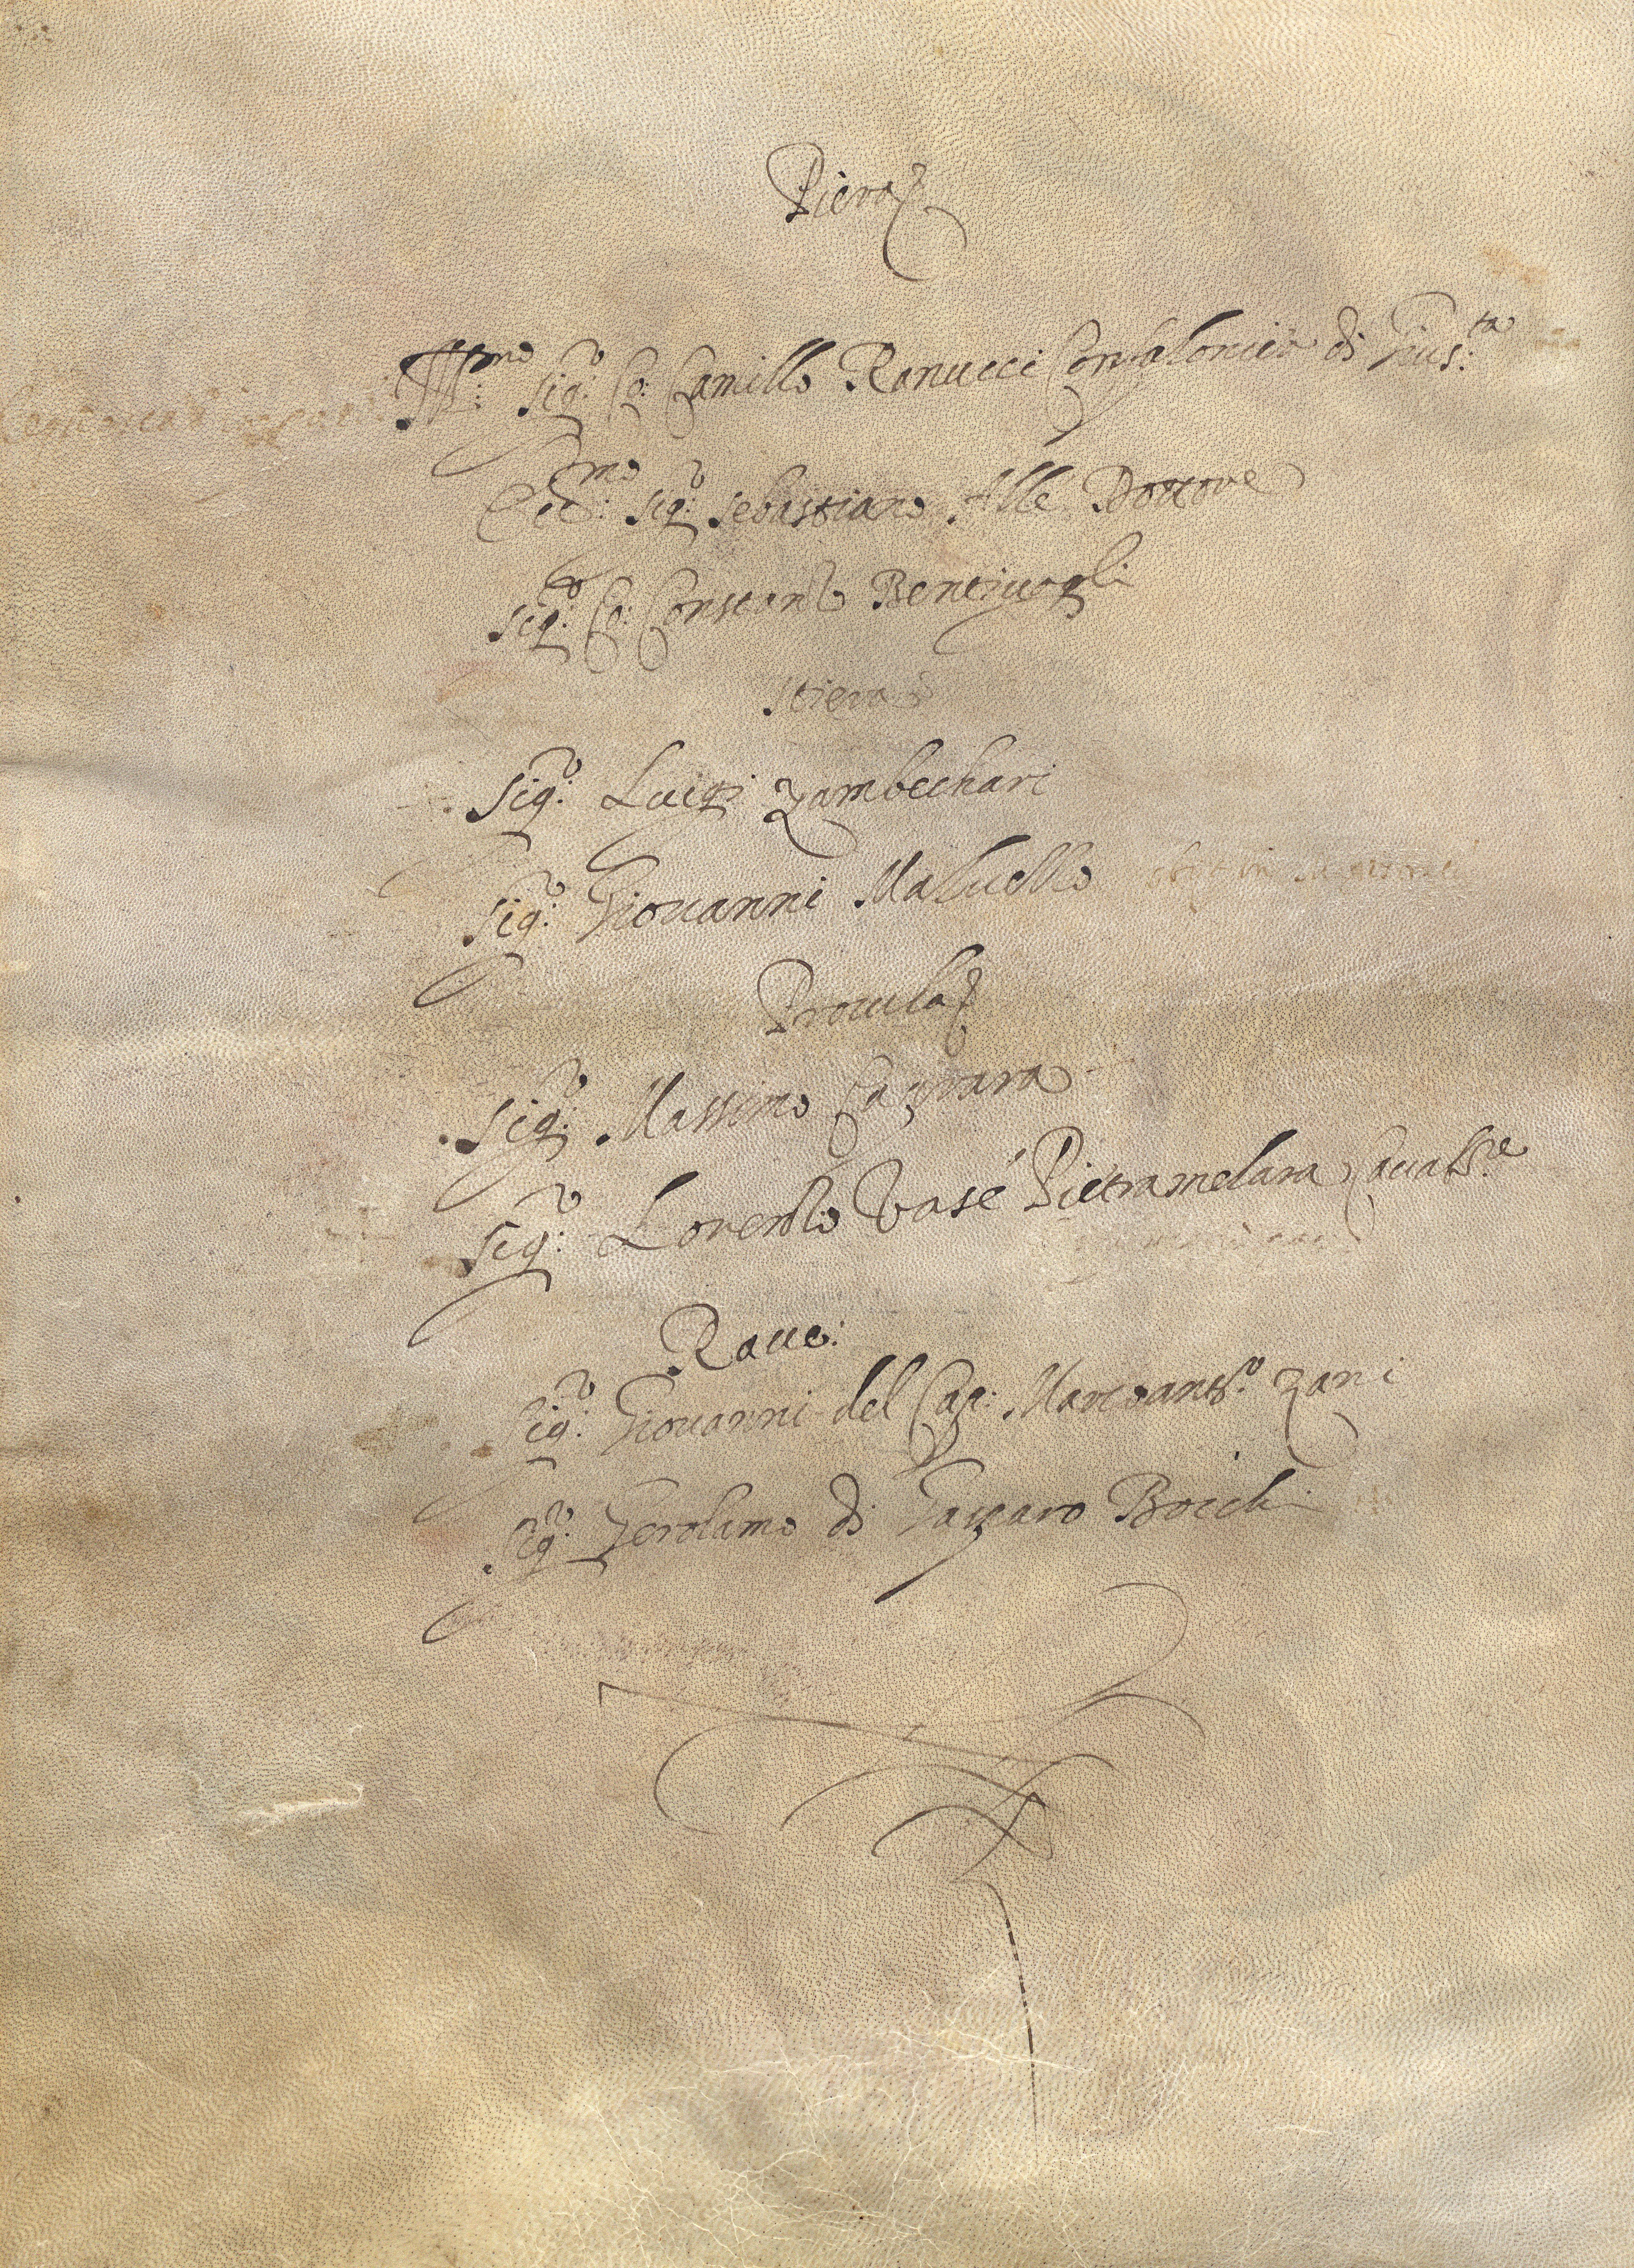 Piera
Ill:mo Sig:r Co: Camillo Ranucci Confalonier di Gius:ta
Ecc:mo Sig:r Sebastiano Alle Dottore
Sig:r Co: Constanzo Bentivogli
Stiera
Sig:r Luigi Zambechari
Sig:r Giovanni Malvezzo obijt in
Procula
Sig:r Massimo Caprara
Sig:r Lorenzo Vasé Pietramelara
Rave:
Sig:r Giovanni del Cap: Marcant:o Zani
Sig:r Gerolamo di Gasparo Bocchi